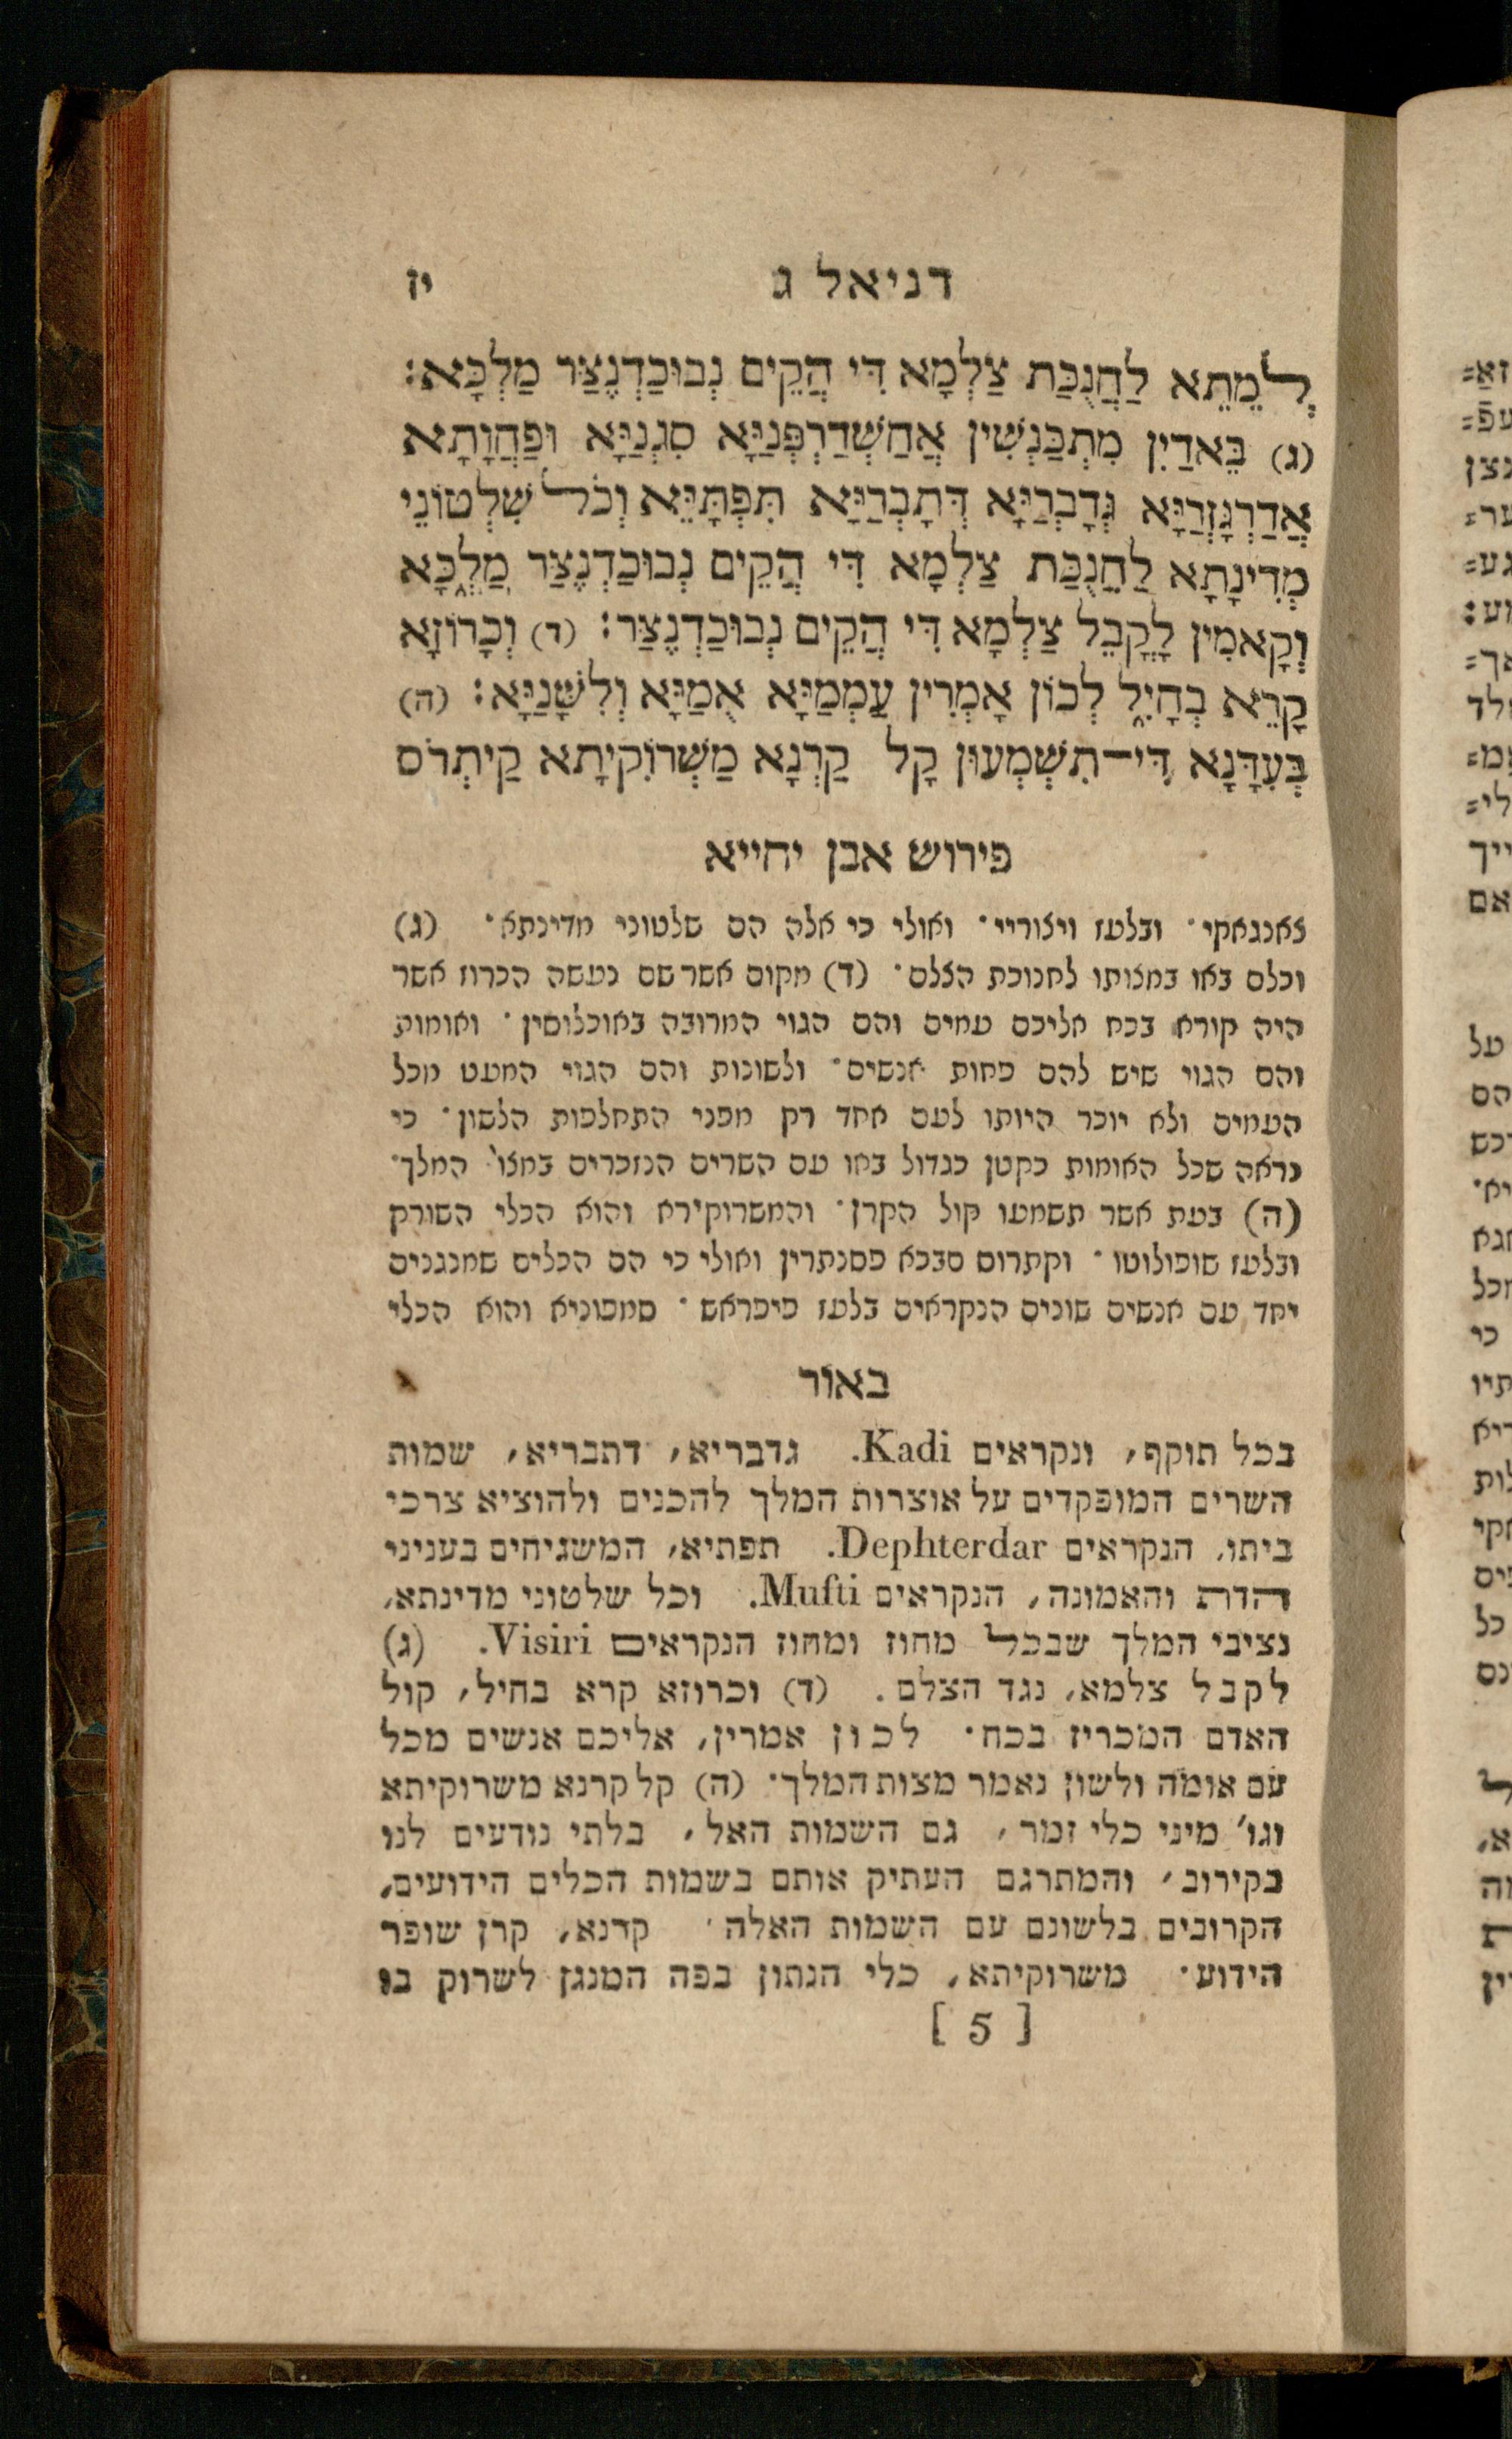 דניאל ג יז
לְמֵתֵא לַחֲנֻכַּת צַלְמָא דִּי הֲקֵים נְבוּכַדְנֶצַּר מַלְכָּא:
(ג) בֵּאדַיִן מִתְכַּנְּשִׁין אֲחַשְׁדַּרְפְּנַיָּא סִגְנַיָּא וּפַחֲוָתָא
אֲדַרְגָּזְרַיָּא גְּדָבְרַיָּא דְּתָבְרַיָּא תִּפְתָּיֵּא וְכֹל שִׁלְטוֹנֵי
מְדִינָתָא לַחֲנֻכַּת צַלְמָא דִּי הֲקֵים נְבוּכַדְנֶצַּר מַלְכָּא
וְקָאמִין לָקֳבֵל צַלְמָא דִּי הֲקֵים נְבוּכַדְנֶצַּר: (ד) וְכָרוֹזָא
קָרֵא בְחָיִל לְכוֹן אָמְרִין עַמְמַיָּא אֻמַּיָּא וְלִשָּׁנַיָּא: (ה)
בְּעִדָּנָא דִּי־תִשְׁמְעוּן קָל קַרְנָא מַשְׁרוֹקִיתָא קַיתְרֹס
פירוש אבן יחייא
צאנגאקי· ובלעז ויצוריי· ואולי כי אלה הם שלטוני מדינתא· (ג)
וכלם באו במצותו לחנוכת הצלם· (ד) מקום אשר שם נעשה הכרוז אשר
היה קורא בכח אליכם עמים והם הגוי המרובה באוכלוסין· ואומות
והם הגוי שיש להם פחות אנשים· ולשונות והם הגוי המעט מכל
העמים ולא יוכר היותו לעם אחד רק מפני התחלפות הלשון· כי
נראה שכל האומות כקטן כגדול באו עם השרים הנזכרים במצו' המלך·
(ה) בעת אשר תשמעו קול הקרן· והמשרוקירא והוא הכלי השורק
ובלעז שופולוטו· וקתרוס סבכא פסנתרין ואולי כי הם הכלים שמנגנים
יחד עם אנשים שונים הנקראים בלעז פיפראש· סמפוניא והוא הכלי
באור
בכל תוקף, ונקראים Kadi. גדבריא, דתבריא, שמות
השרים המופקדים על אוצרות המלך להכנים ולהוציא צרכי
ביתו, הנקראים Dephterdar. תפתיא, המשגיחים בעניני
הדת והאמונה, הנקראים Mufti. וכל שלטוני מדינתא,
נציבי המלך שבכל מחוז ומחוז הנקראים Visiri. (ג)
לקבל צלמא, נגד הצלם. (ד) וכרוזא קרא בחיל, קול
האדם המכריז בכח· לכון אמרין, אליכם אנשים מכל
עם אומה ולשון נאמר מצות המלך· (ה) קל קרנא משרוקיתא
וגו' מיני כלי זמר, גם השמות האל, בלתי נודעים לנו
בקירוב, והמתרגם העתיק אותם בשמות הכלים הידועים,
הקרובים בלשונם עם השמות האלה· קרנא, קרן שופר
הידוע· משרוקיתא, כלי הנתון בפה המנגן לשרוק בו
[ 5 ]